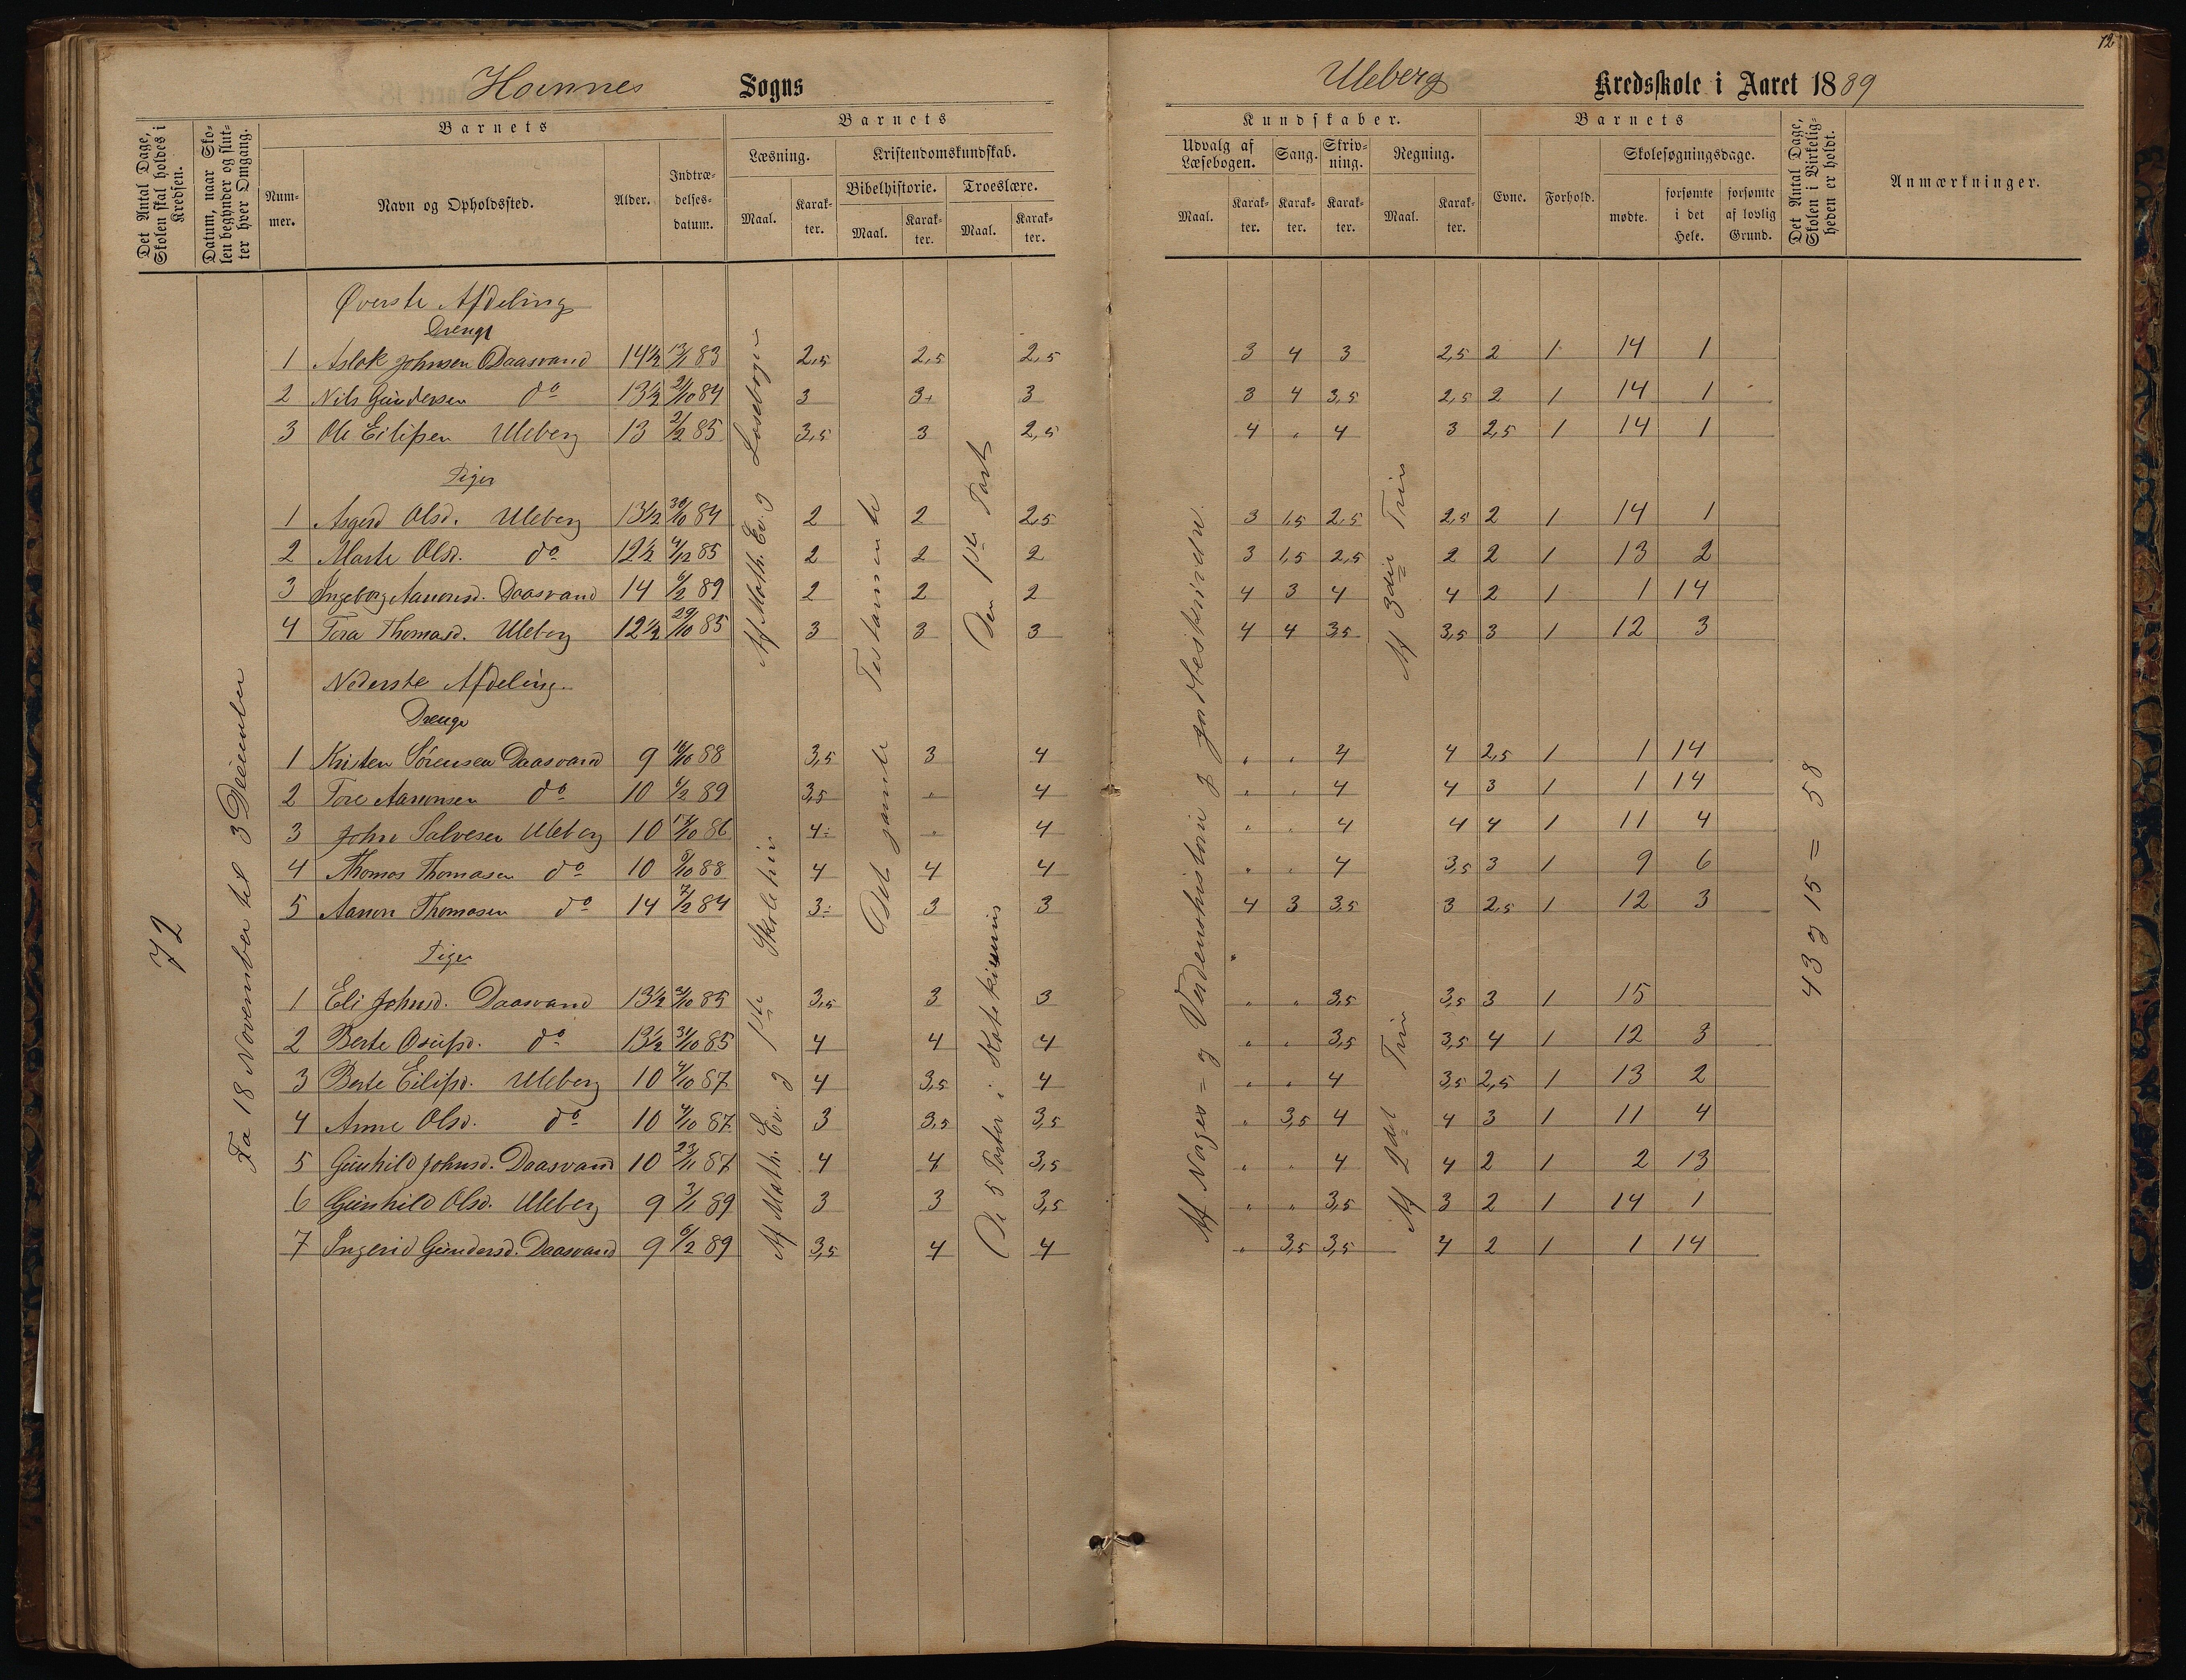 12
Hornnes Sogns
Uleberg Kredsskole i Aaret 1889
Det Antal Dage, Skolen skal holdes i Kredsen.
Datum, naar Skolen begynder og slutter hver Omgang.
Barnets
Nummer.
Navn og Opholdssted.
Alder.
Indtrædelsesdatum.
Barnets
Læsning.
Maal.
Karakter.
Kristendomskundskab.
Bibelhistorie.
Maal.
Karakter.
Troeslære.
Maal.
Karakter.
Kundskaber.
Udvalg af Læsebogen.
Maal.
Karakter.
Sang.
Karakter.
Skrivning.
Karakter.
Regning.
Maal.
Karakter.
Barnets
Evne.
Forhold.
Skolesøgningsdage.
mødte.
forsømte i det Hele.
forsømte af lovlig Grund.
Det Antal Dage, Skolen i Virkeligheden er holdt.
Anmærkninger.
72
Fra 18 November til 3 December
Øverste Afdeling
Drenge
1 Aslak Johnsen Daasvand 14½ 13/1 83 2,5 2,5 2,5 3 4 3 2,5 2 1 14 1
2 Nils Gundersen do 13½ 21/10 84 3 3+ 3 3 4 3,5 2,5 2 1 14 1
3 Ole Eilifsen Uleberg 13 2/2 85 3,5 3 2,5 4 " 4 3 2,5 1 14 1
Piger
1 Asgerd Olsd. Uleberg 13½ 30/10 84 2 2 2,5 3 1,5 2,5 2,5 2 1 14 1
2 Marte Olsd. do 12½ 4/12 85 2 2 2 3 1,5 2,5 2 2 1 13 2
3 Ingeborg Aanonsd. Daasvand 14 6/2 89 2 2 2 4 3 4 4 2 1 1 14
4 Tora Thomasd. Uleberg 12½ 29/10 85 3 3 3 4 4 3,5 3,5 3 1 12 3
Nederste Afdeling.
Drenge
1 Kristen Sørensen Daasvand 9 16/10 88 3,5 3 4 " " 4 4 2,5 1 1 14
2 Tore Aanonsen do 10 6/2 89 3,5 " 4 " " 4 4 3 1 1 14
3 John Salvesen Uleberg 10 13/10 86 4: " 4 " " 4 4 4 1 11 4
4 Thomas Thomasen do 10 8/10 88 4 4 4 " " 4 3,5 3 1 9 6
5 Aanon Thomasen do 14 7/2 84 3: 3 3 4 3 3,5 3 2,5 1 12 3
Piger
1 Eli Johnsd. Daasvand 13½ 2/10 85 3,5 3 3 " " 3,5 3,5 3 1 15
2 Berte Osufsd. do 13½ 31/10 85 4 4 4 " " 3,5 3,5 4 1 12 3
3 Berte Eilifsd. Uleberg 10 4/10 87 4 3,5 4 " " 4 3,5 2,5 1 13 2
4 Anne Olsd. do 10 4/10 87 3 3,5 3,5 " 3,5 4 4 3 1 11 4
5 Gunhild Johnsd. Daasvand 10 23/11 87 4 4 3,5 " " 4 4 2 1 2 13
6 Gunhild Olsd. Uleberg 9 3/1 89 3 3 3,5 " " 3,5 3 2 1 14 1
7 Ingerid Gundersd. Daasvand 9 6/2 89 3,5 4 4 " 3,5 3,5 4 2 1 1 14
Af Math. Ev. og Læsebogen
Af Math. Ev. og 1ste Skoletrin
Det gamle Testamente
Den 1ste Part
De 5 Parter i Katekismus
Af Norges= og Verdenshistorie og Jordbeskrivelse.
Af 3die Trin
Af 2det Trin
43 og 15 = 58